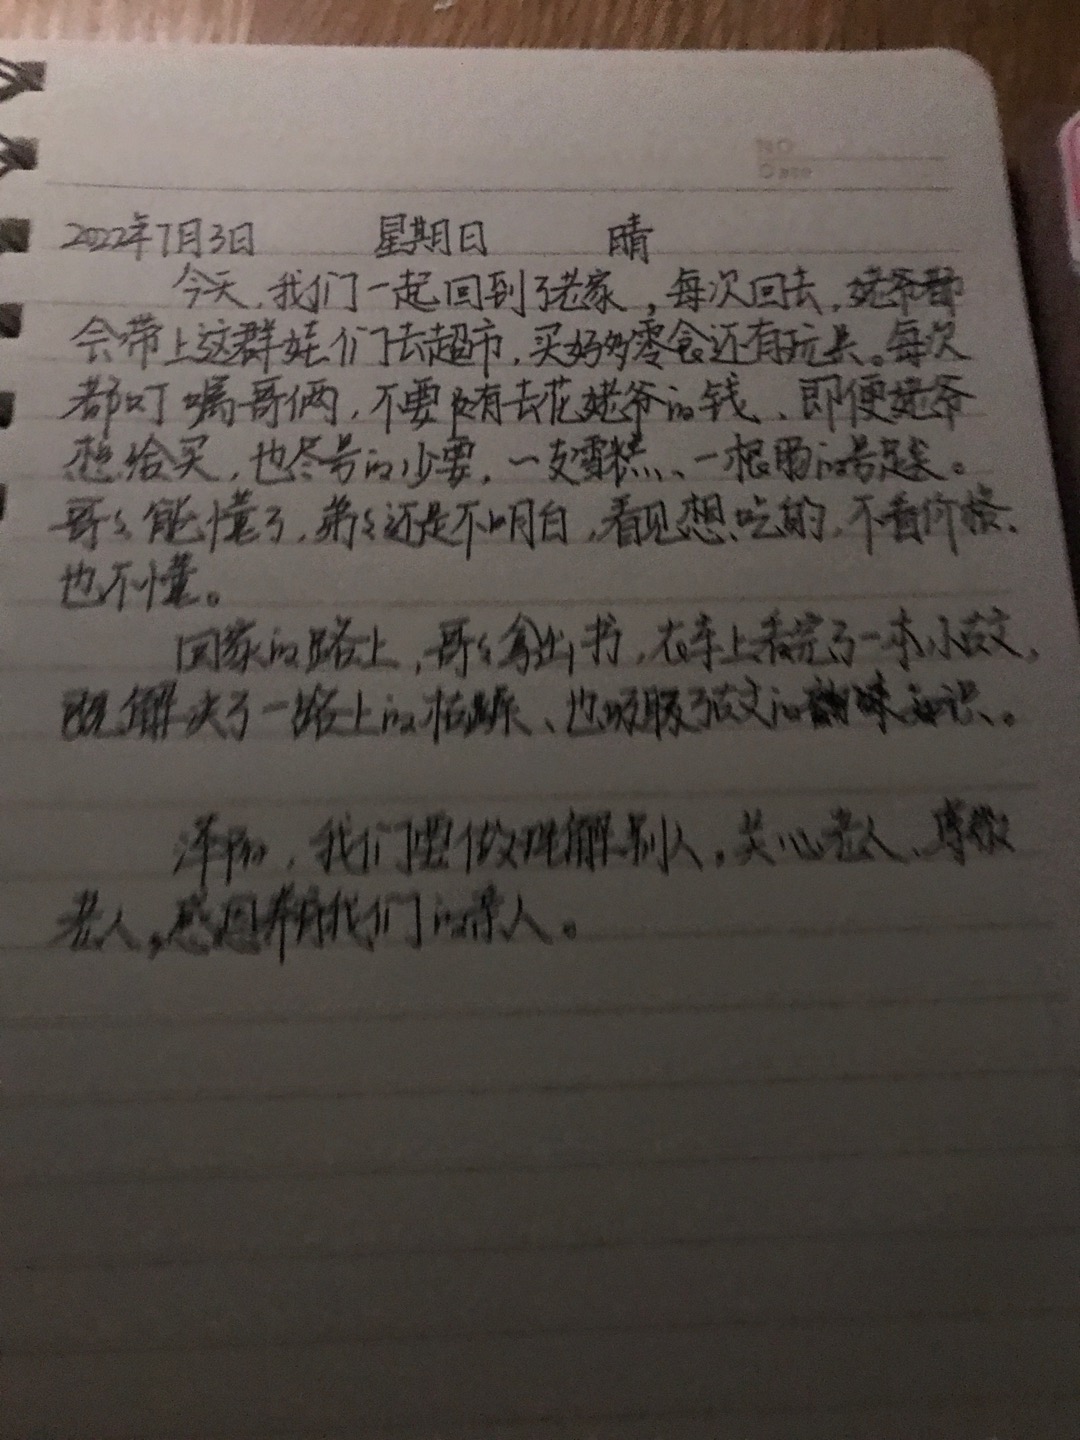 No
Date
2022年7月3日 星期日 晴
今天,我们一起回到了老家,每次回去,姥爷都
会带上这群娃们去超市,买好多零食还有玩具。每次
都叮嘱哥俩,不要去花姥爷的钱、即便姥爷
想给买,也尽量的少要,一支雪糕、一根肠的
哥哥能懂了,弟弟还是不明白,看见想吃的,不看价格、
也不懂。
回家的路上,哥哥拿出书,在车上看完了一本小古文,
既解决了一路上的枯燥、也吸取了古文的知识。
我们要做理解别人,关心老人、尊敬
老人,感恩我们的亲人。